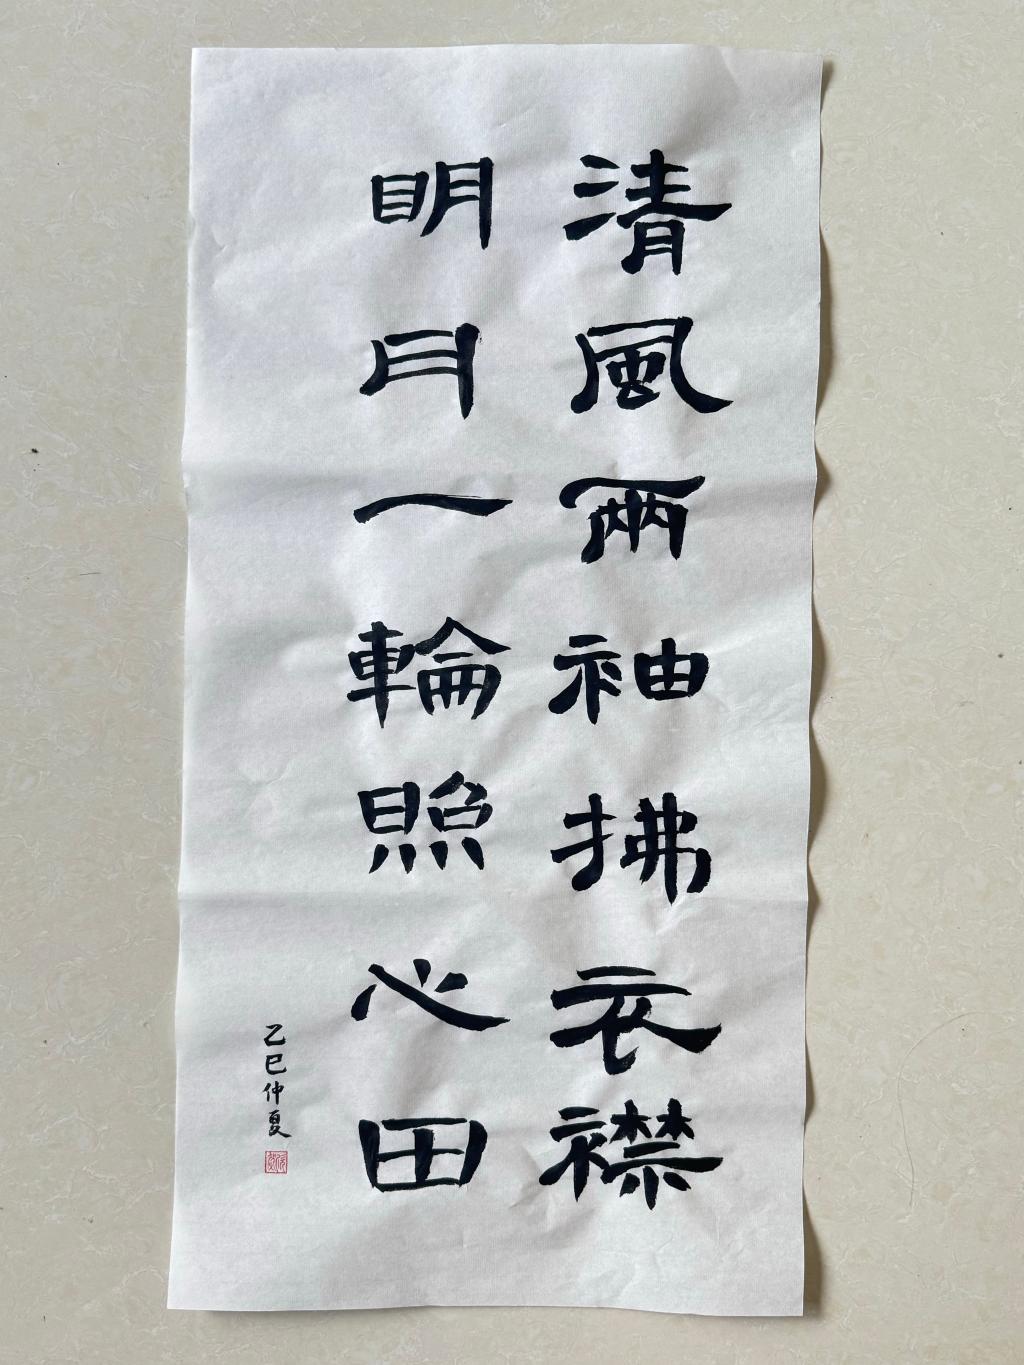 清風兩袖拂衣襟
明月一輪照心田
乙巳仲夏